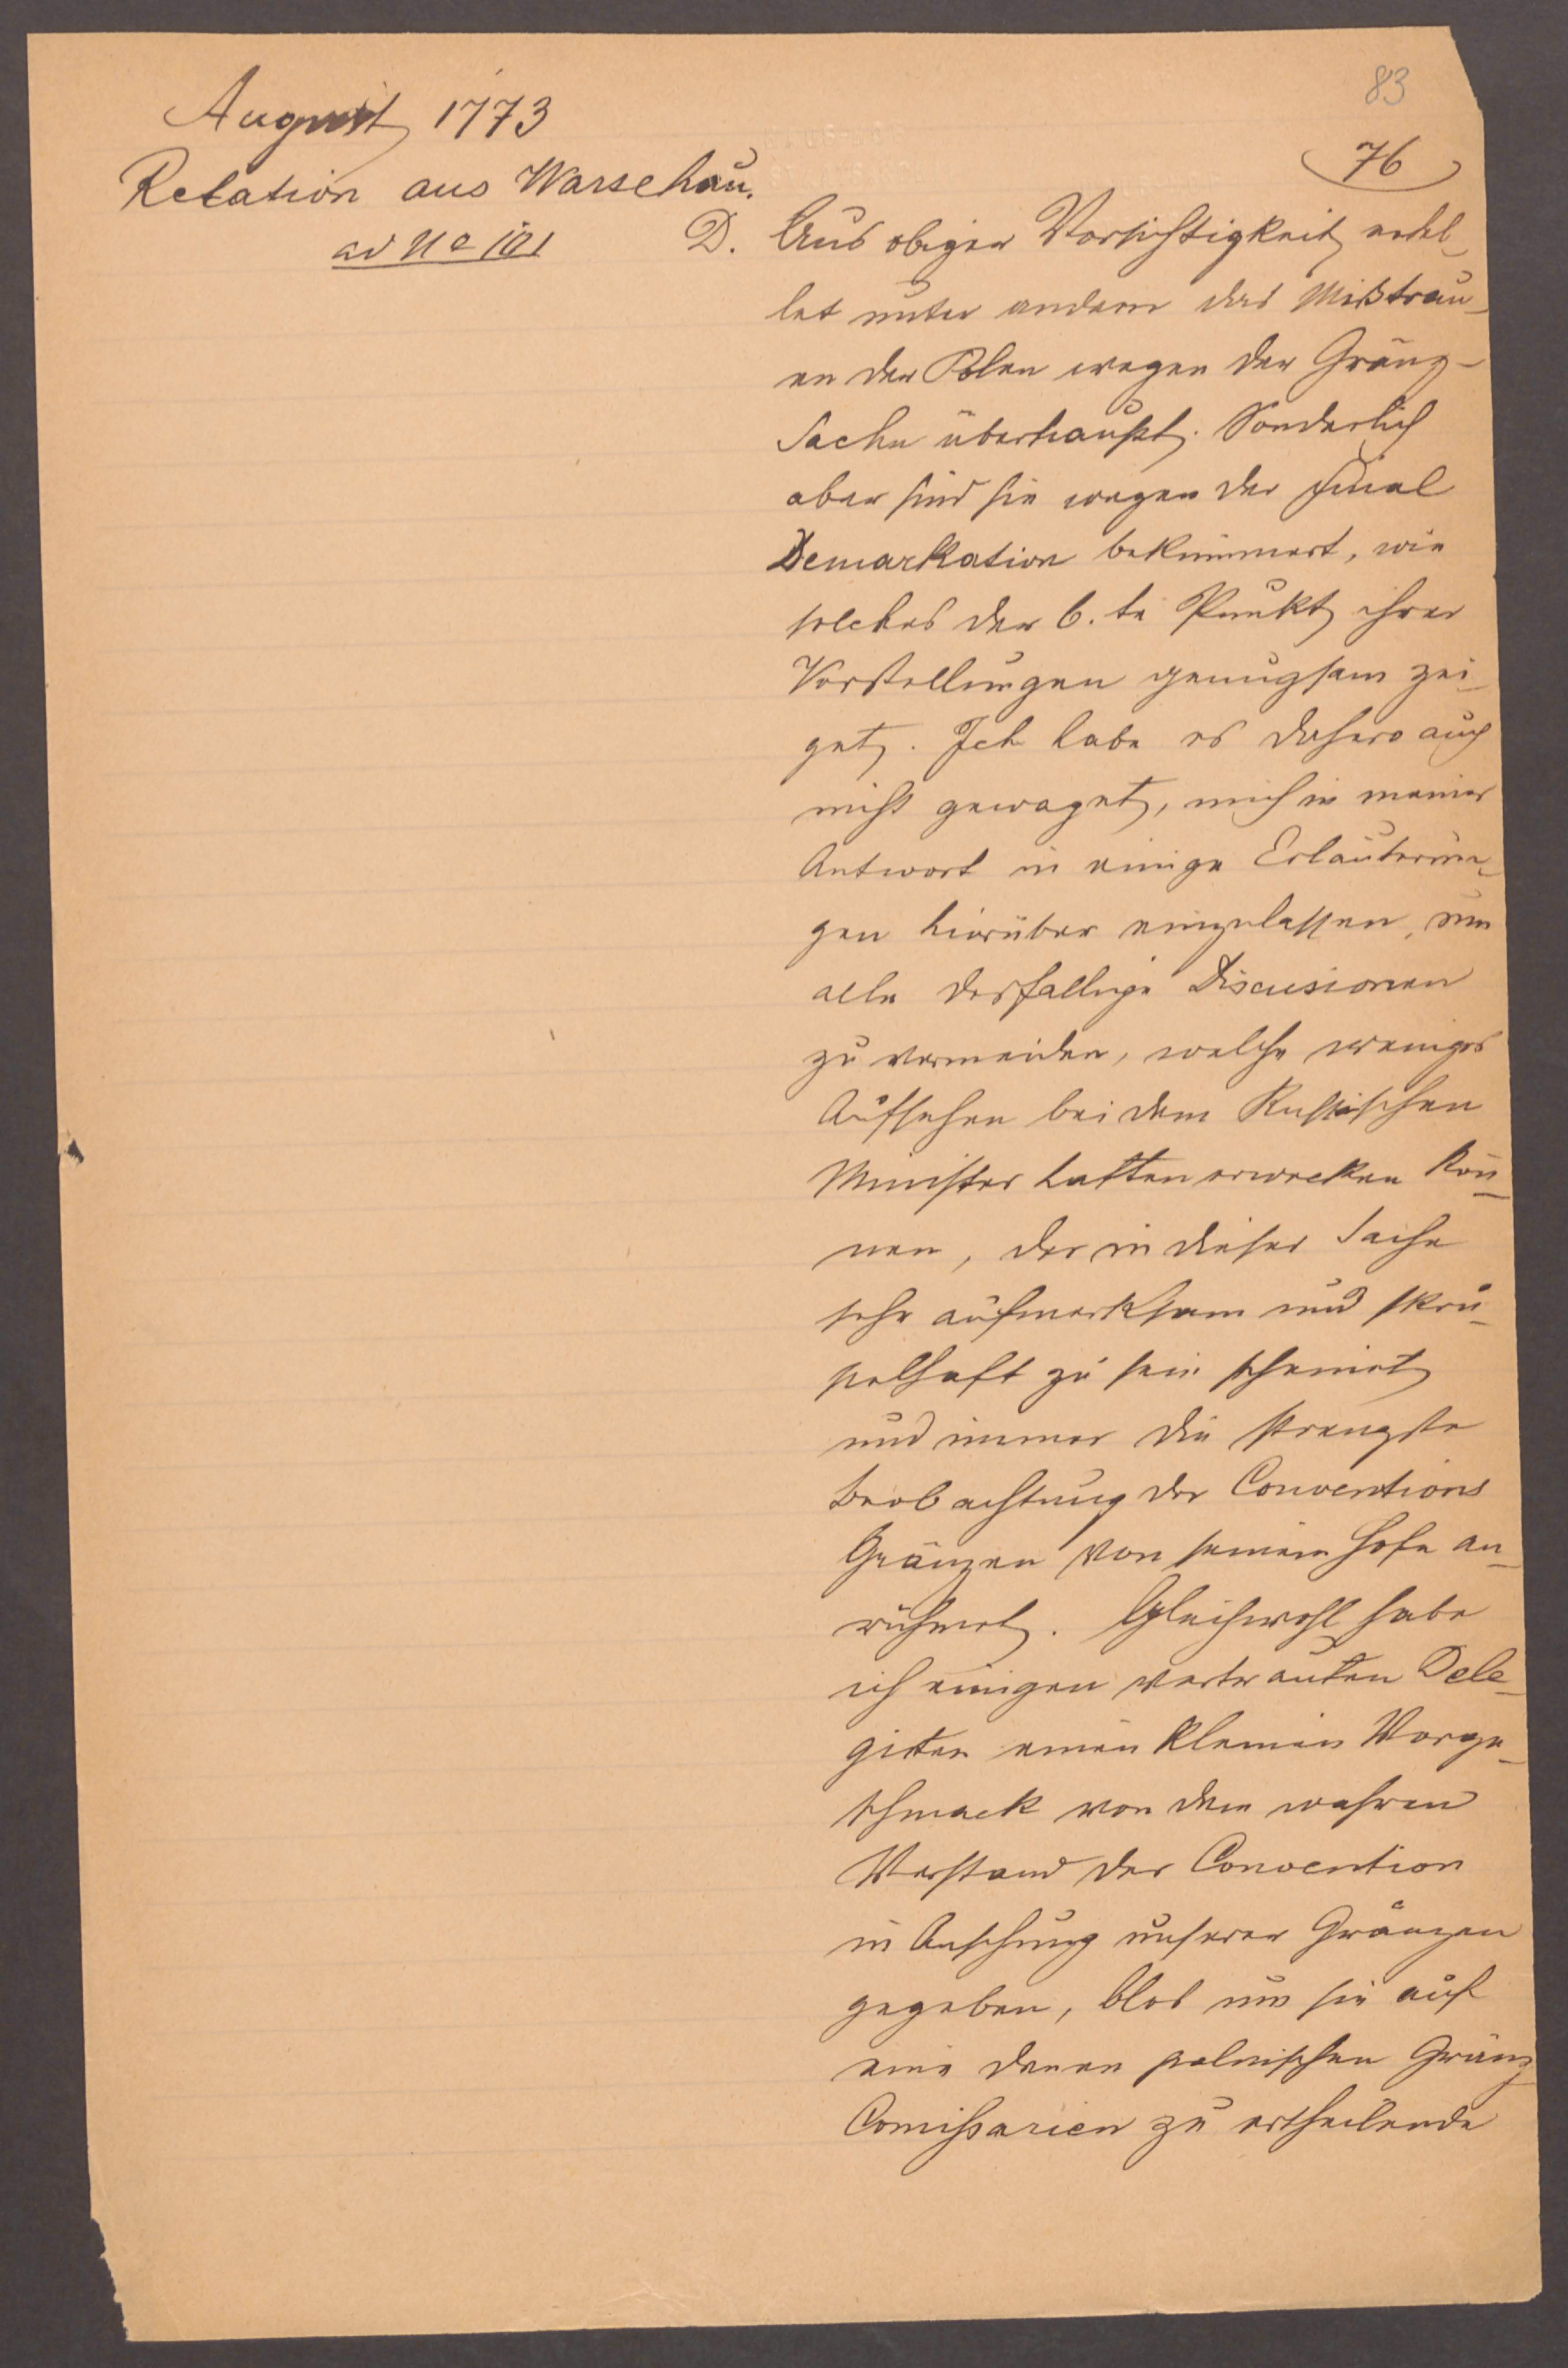 83
August 1773
76
Relation aus Warschau.
ad No 101
D. Aus obiger Vorsichtigkeit erhel-
let unter andern das Mißtrau-
en der Polen wegen der Gränz-
Sache überhaupt. Sonderlich
aber sind sie wegen der final
Demarkation bekümmert, wie
solches der 6.te Punkt ihrer
Vorstellungen genugsam zei-
get. Ich habe es dahero auch
nicht gewaget, mich in meiner
Antwort in einige Erläuterun-
gen hierüber einzulassen, um
alle desfallige Discusionen
zu vermeiden, welche weniges
Aufsehen bei dem Russischen
Minister hatten erwecken kön-
nen, der in dieser Sache
sehr aufmerksam und skru-
pelhaft zu sein scheinet
und immer die strengste
Beobachtung der Conventions
Gränzen von seinem Hofe an-
rühmet. Gleichwohl habe
ich einigen vertrauten Dele-
girten einen kleinen Vorge-
schmack von dem wahren
Verstand der Convention
in Ansehung unserer Gränzen
gegeben, blos um sie auf
eine denen polnischen Gränz
Comißarien zu ertheilende